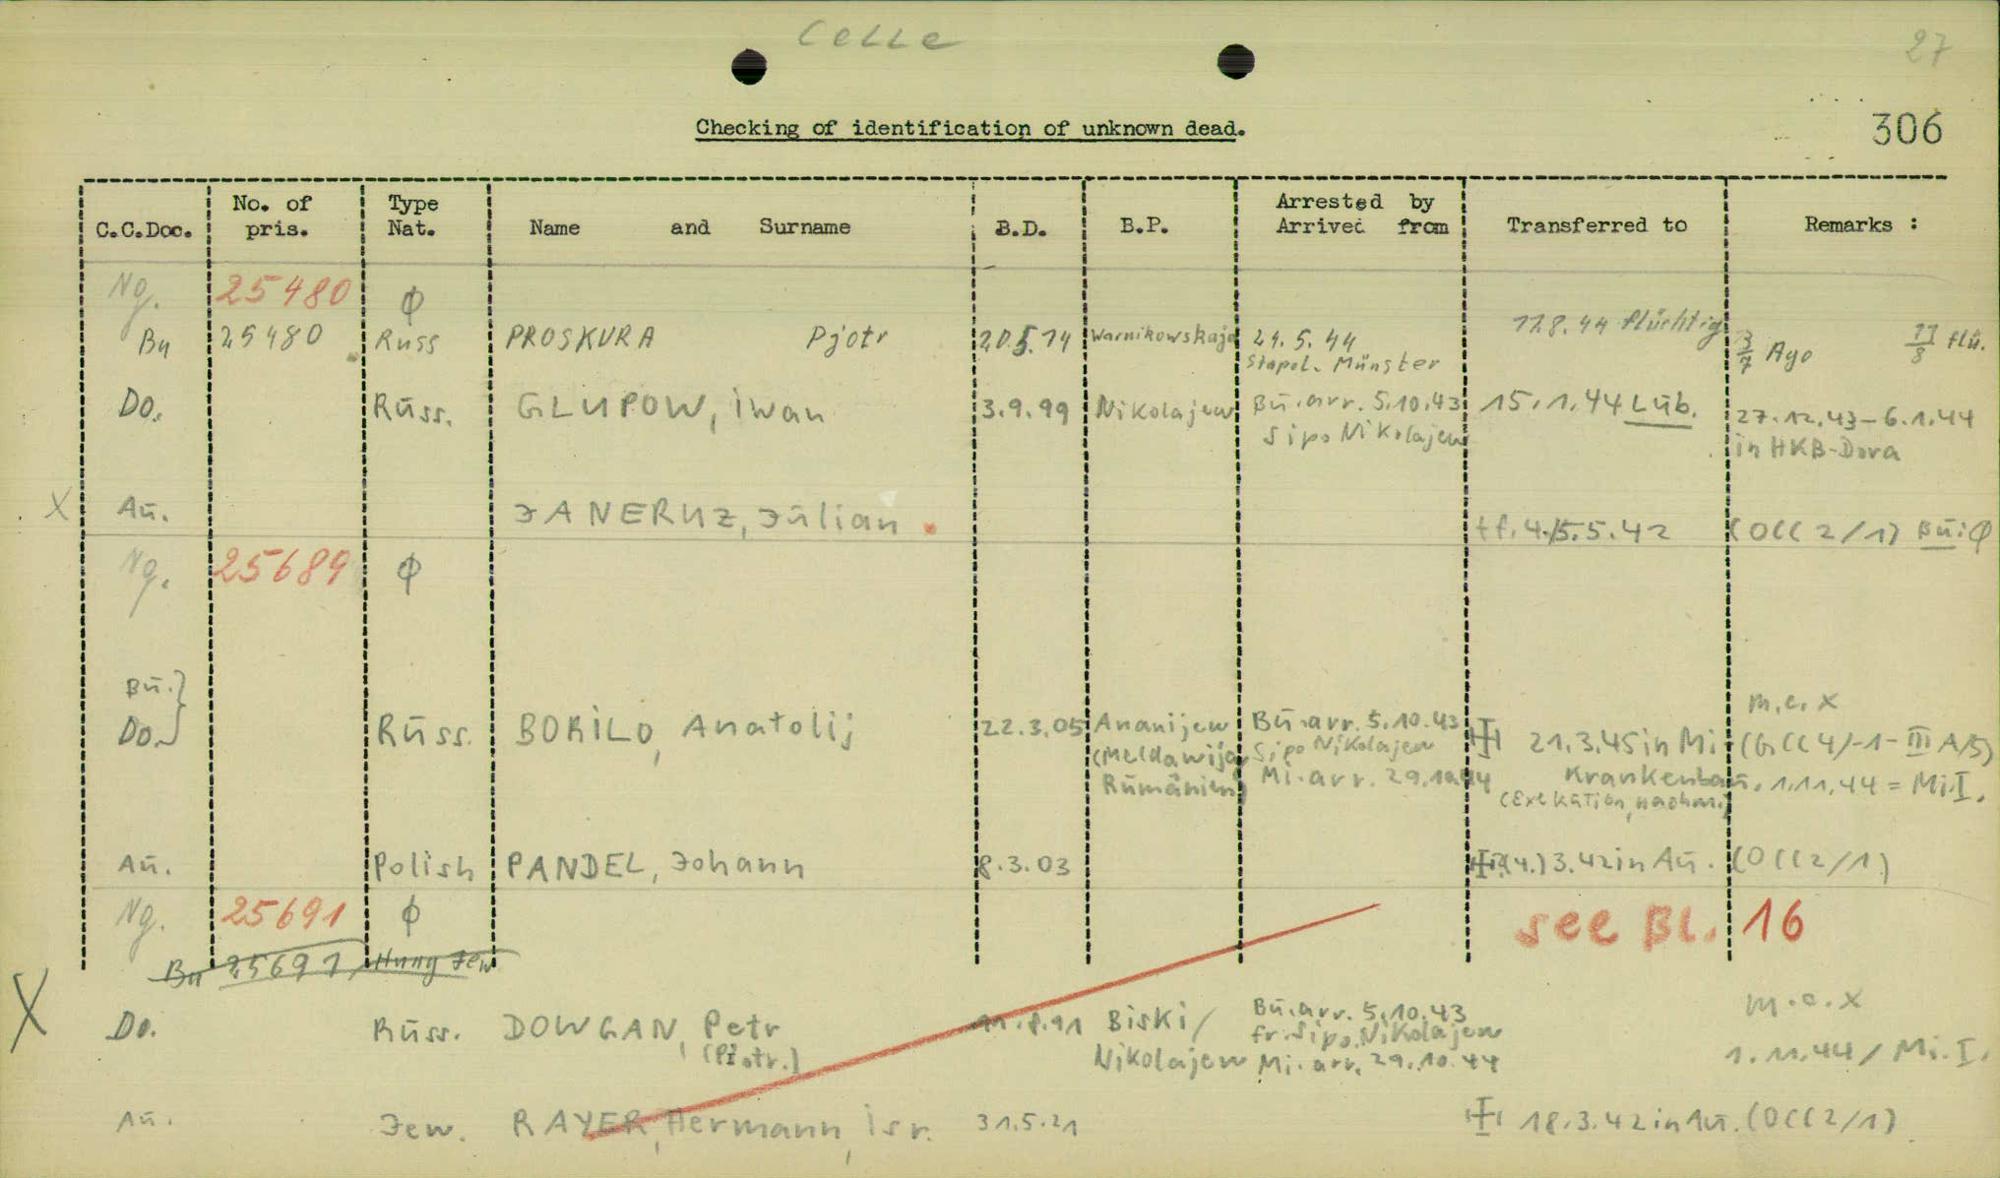 Celle
27
Checking of identification of unknown dead.
306
C.C.Doc. No. of pris. Type Nat. Name and Surname B.D. B.P. Arrested by Arrived from Transferred to Remarks :
Ng. 25480 Φ
Bu 25480 Russ PROSKURA Pjotr 20.5.14 Warnikowskaja 24.5.44 17.8.44 flüchtig 3/7 Ago 17/8 flü.
Stapol. Münster
Do. Rūss. GLUPOW, iwan 3.9.99 Nikolajew Bū. arr. 5.10.43 15.1.44 Lüb. 27.12.43-6.1.44
Sipo Nikolajew in HKB-Dora
X Aū. JANERUZ, Jūlian tf. 4./5.5.42 (OCC 2/1) Bū: Φ
Ng. 25689 Φ
Bū.} m.c.X
Do.} Rūss. BORiLO, Anatolij 22.3.05 Ananijew Bū. arr. 5.10.43 21.3.45 in Mi- (GCC4)-1-III A/5)
(Meldawija Sipo Nikolajew Krankenbaū. 1.11.44 = Mi.I.
Rūmänien) Mi. arr. 29.10.44 (Exekūtion, nachm.)
Aū. Polish PANDEL, Johann 8.3.03 (4.) 3.42 in Aū. (OCC2/1)
Ng. 25691 Φ see Bl. 16
Bu 25691 Hung Jew
X Do. Rūss. DOWGAN, Petr 11.8.91 Biski/ Bū. arr. 5.10.43 m.c.X
(Piotr.) Nikolajew fr. Sipo. Nikolajew
Mi. arr. 29.10.44 1.11.44/Mi.I.
Aū. Jew. RAYER, Hermann, isr. 31.5.21 18.3.42 in Aū. (OCC2/1)